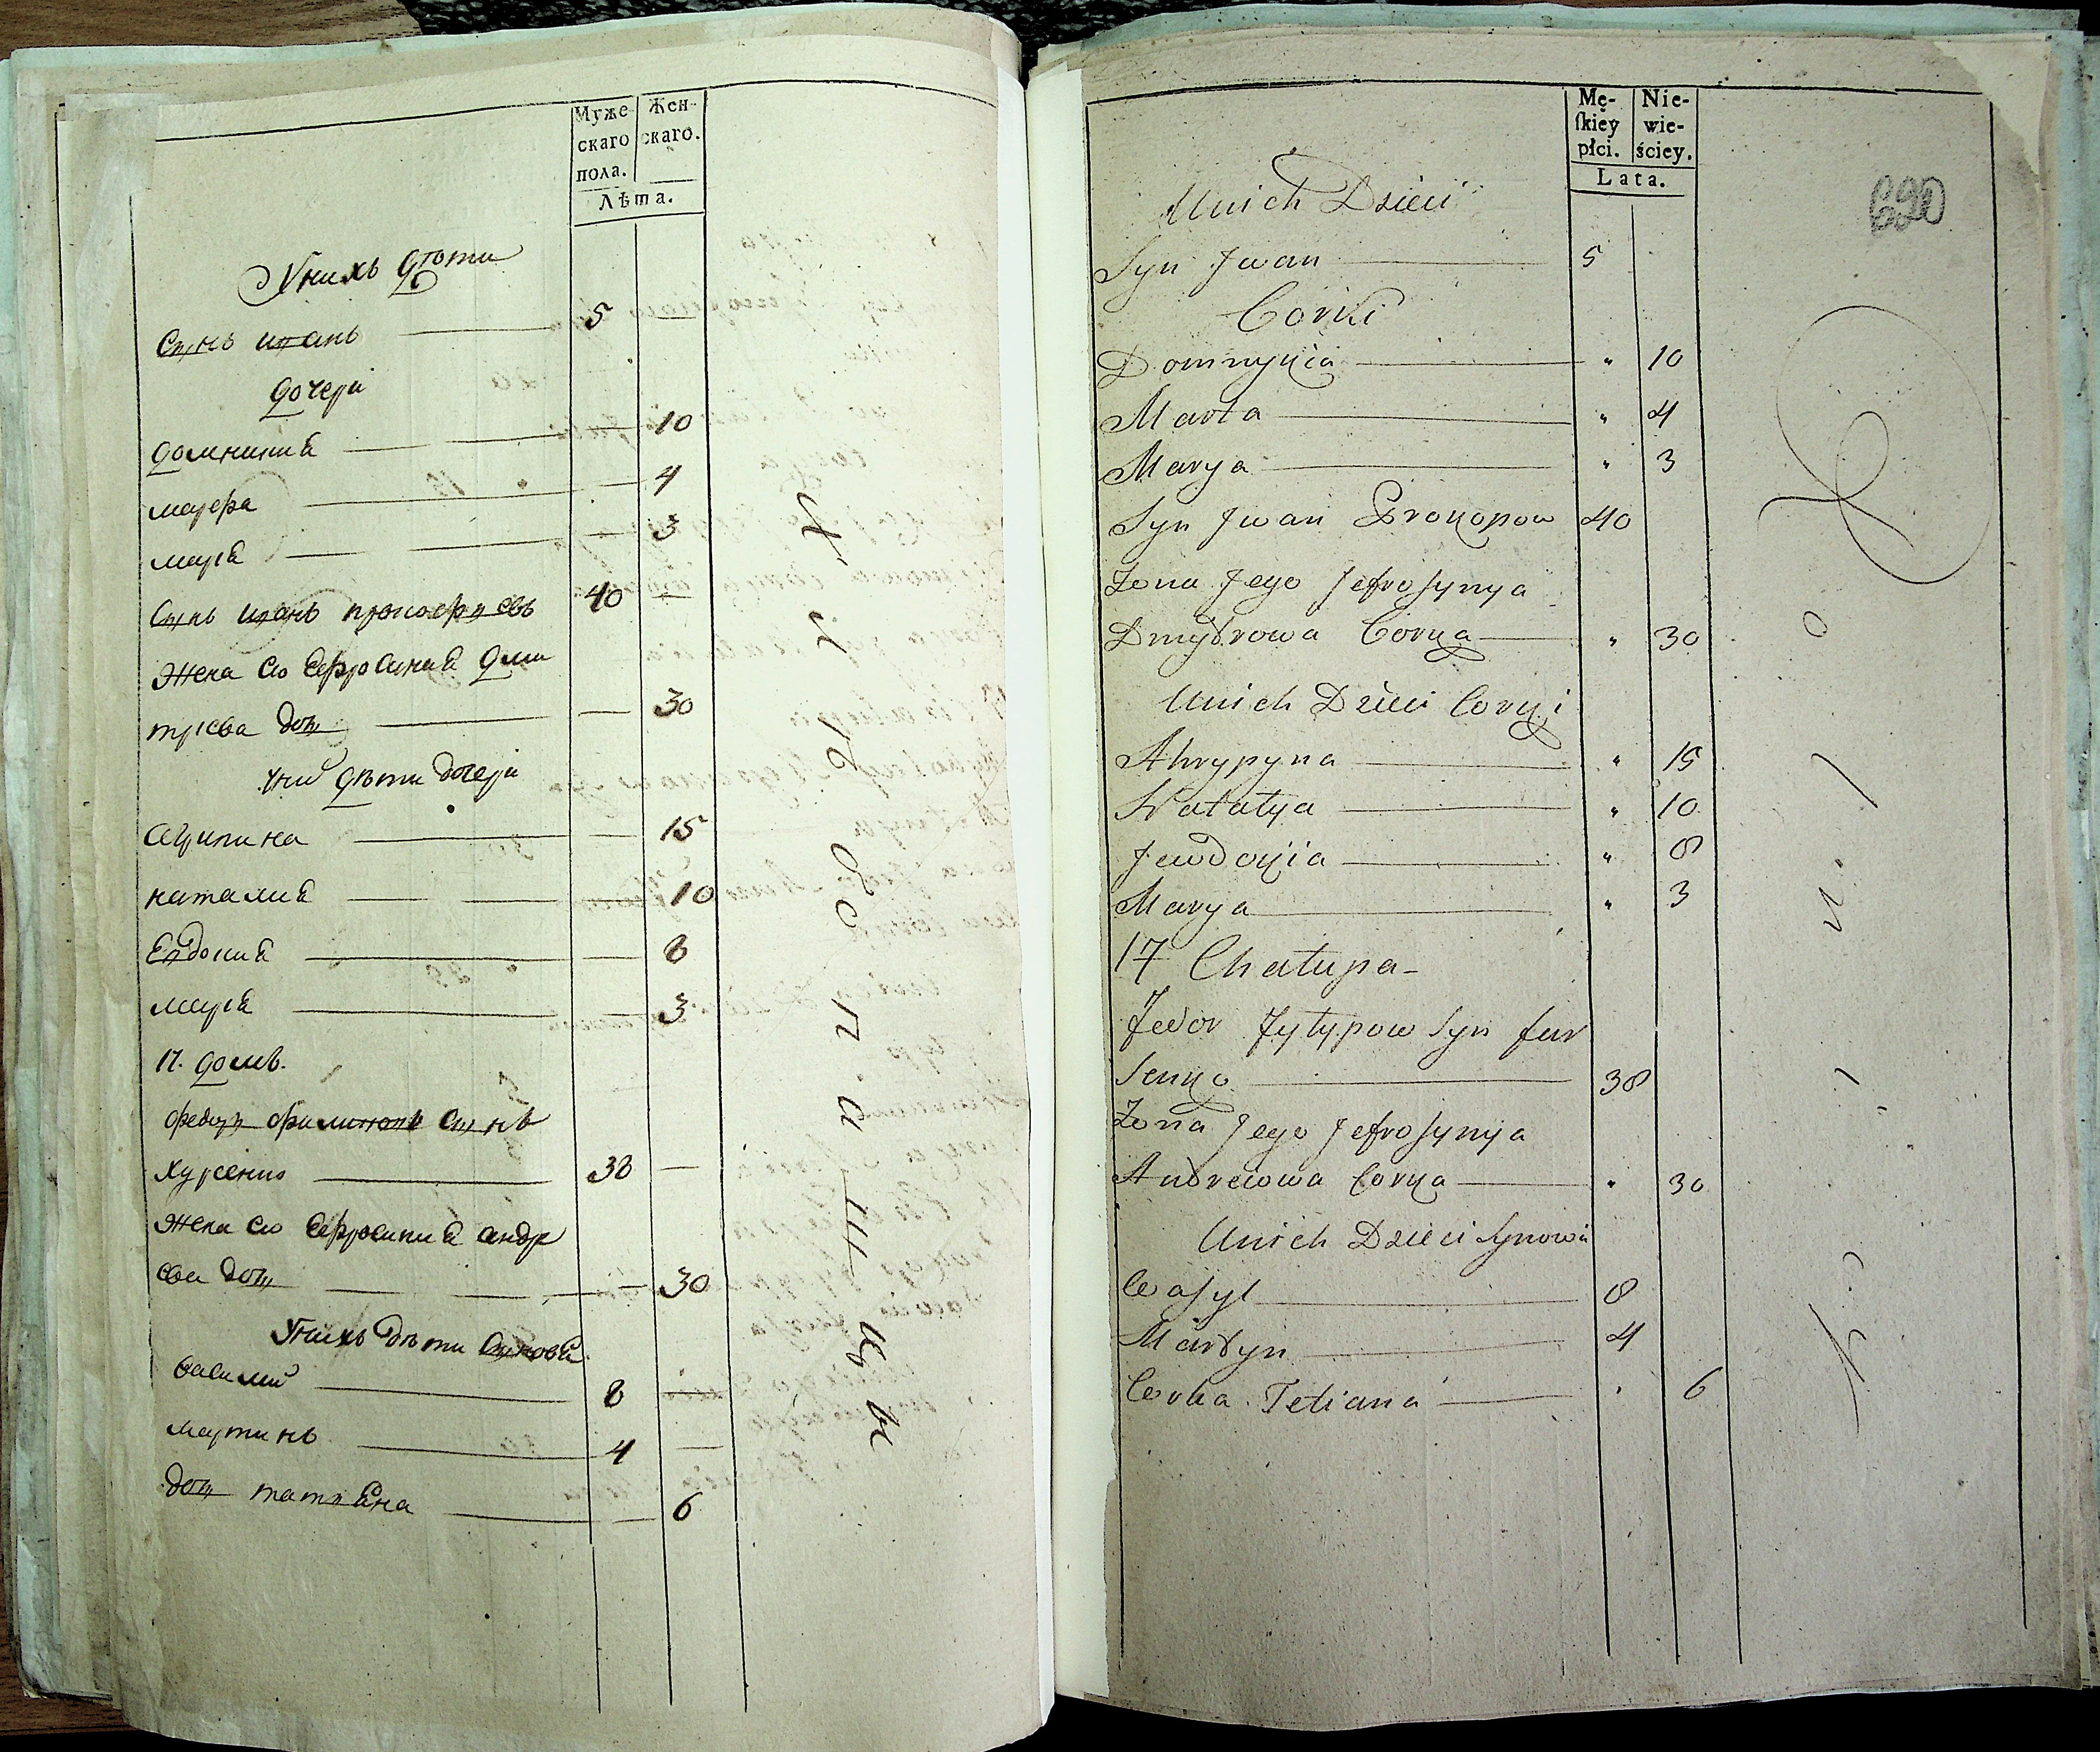 Муже
скаго
пола.
Жен-
скаго.
Лѣта.
Унихъ дѣти
Сынъ иванъ 5
дочери
домникия 10
марфа 4
мария 3
Сынъ иванъ 40
Жена его Ефросиния дми
триева дочь 30
дѣти дочери
агрипина 15
наталия 10
Евдокия 8
мария 3
17. домъ.
федоръ сынъ
хурсенко 38
Жена его Ефросиния андре
ева дочь 30
Унихъ дѣти Сыновя
василий 8
мартинъ 4
дочь татияна 6
Mę-
ſkiey
płci.
Nie-
wie-
ściey.
Lata.
Unich Dzieci
Syn Jwan 5
Corki
Domnykia " 10
Marta " 4
Marya " 3
Syn Jwan Prokopow 40
Żona Jego Jefrosynya
Dmytrowa Corka " 30
Unich Dzieci Corki
Ahrypyna " 15
Natalya " 10
Jewdokia " 8
Marya " 3
17 Chałupa
Fedor Fylypow Syn fur
senko 38
Żona Jego Jefrosynya
Andreiowa Corka " 30
Unich Dzieci Synowie
Wasyl 8
Martyn 4
Corka Tetiana 6